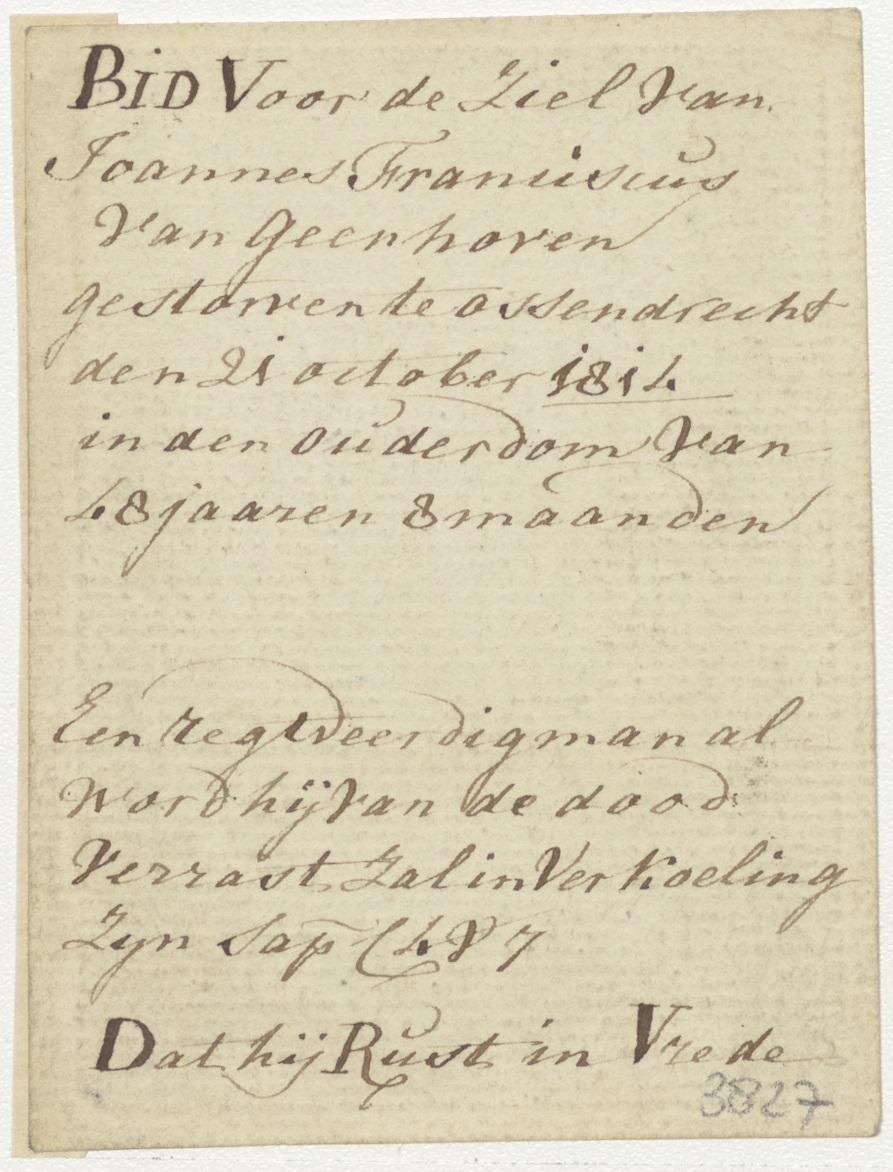 BID Voor de Ziel Van
Joannes Franciscus
Van Geenhoven
gestorven te ossendrecht
den 21 october 1814
in den ouderdom Van
48 jaaren 8 maanden
Een regtveerdig man al
word hij Van de dood
Verrast Zal in Verkoeling
Zyn Sap C 4 V 7
Dat hij Rust in Vrede
3827